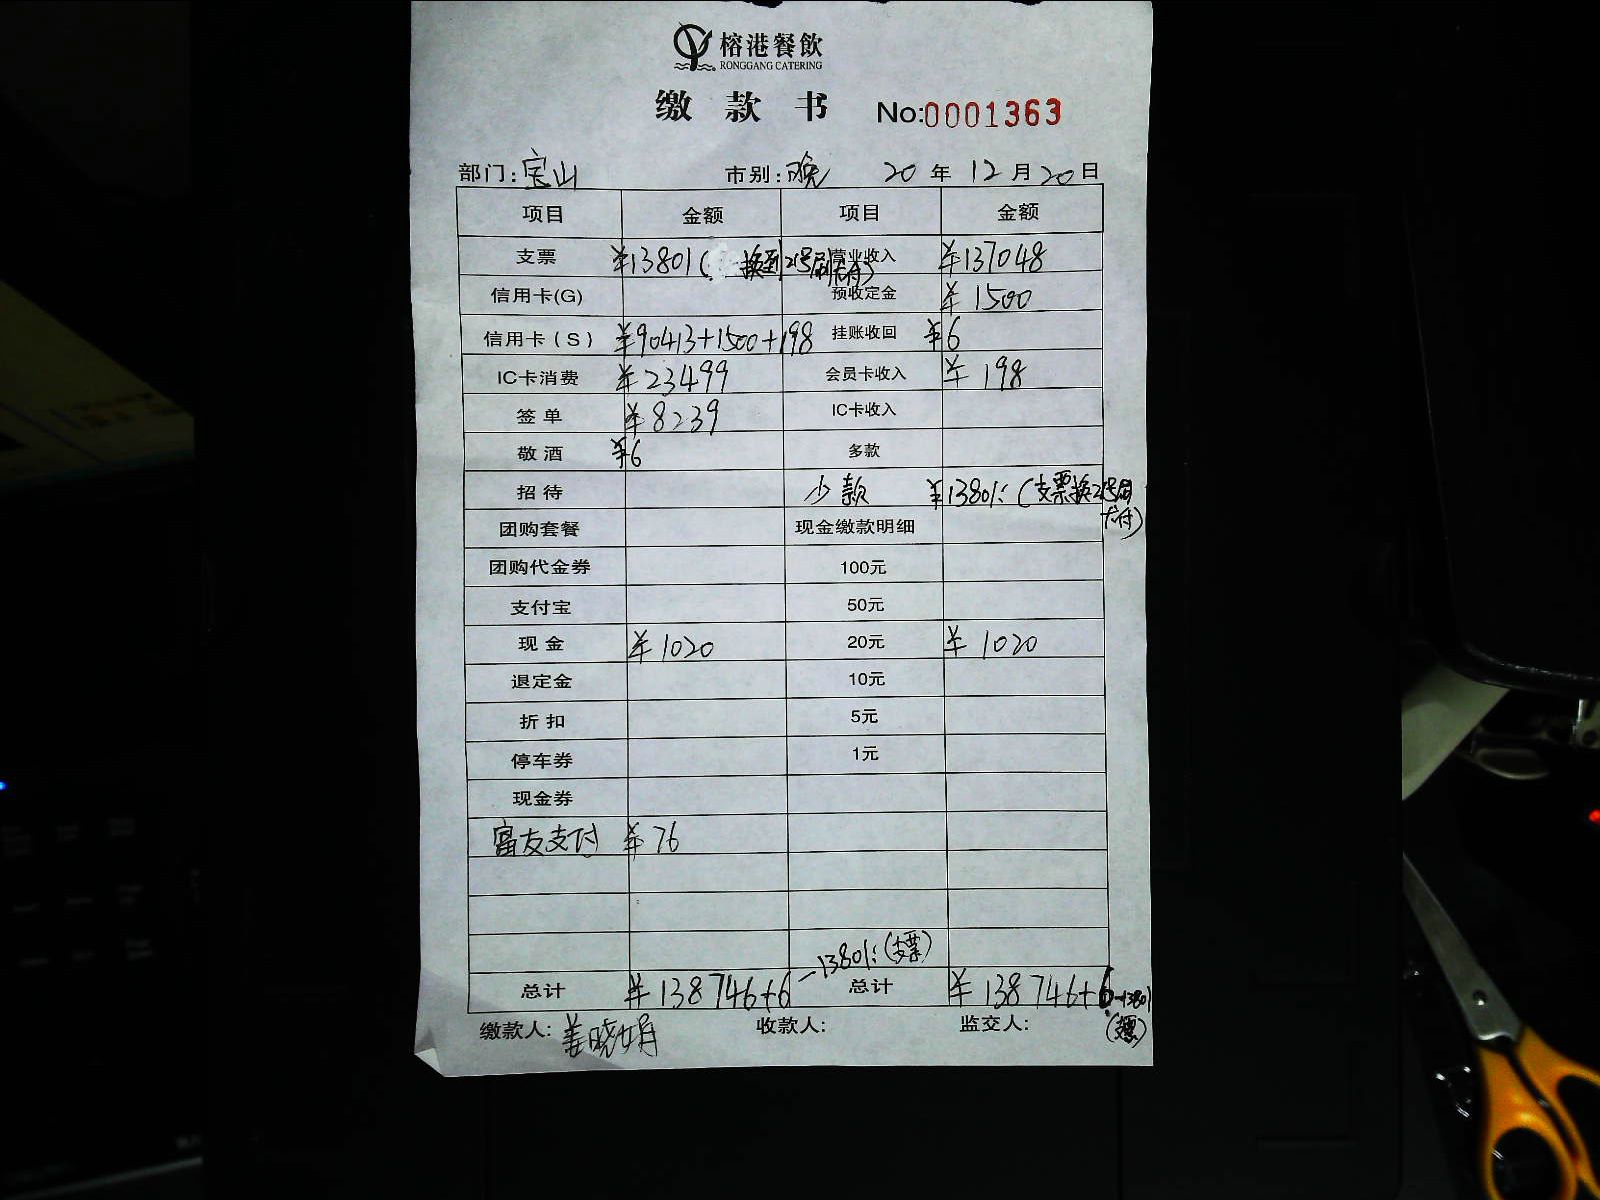 榕港餐飲
RONGGANG CATERING
缴款书 No:0001363
部门:宝山 市别:晚 20年12月20日
项目 金额 项目 金额
支票 ¥13801(换到21号刷卡付) 营业收入 ¥137048
信用卡(G) 预收定金 ¥1500
信用卡(S) ¥90413+1500+198 挂账收回 ¥6
IC卡消费 ¥23499 会员卡收入 ¥198
签单 ¥8239 IC卡收入
敬酒 ¥6 多款
招待 少款 ¥13801(支票换21号刷卡付)
团购套餐 现金缴款明细
团购代金券 100元
支付宝 50元
现金 ¥1020 20元 ¥1020
退定金 10元
折扣 5元
停车券 1元
现金券
富友支付 ¥76
总计 ¥138746+6-13801(支票) 总计 ¥138746+6-13801(支票)
缴款人:姜晓娟 收款人: 监交人: